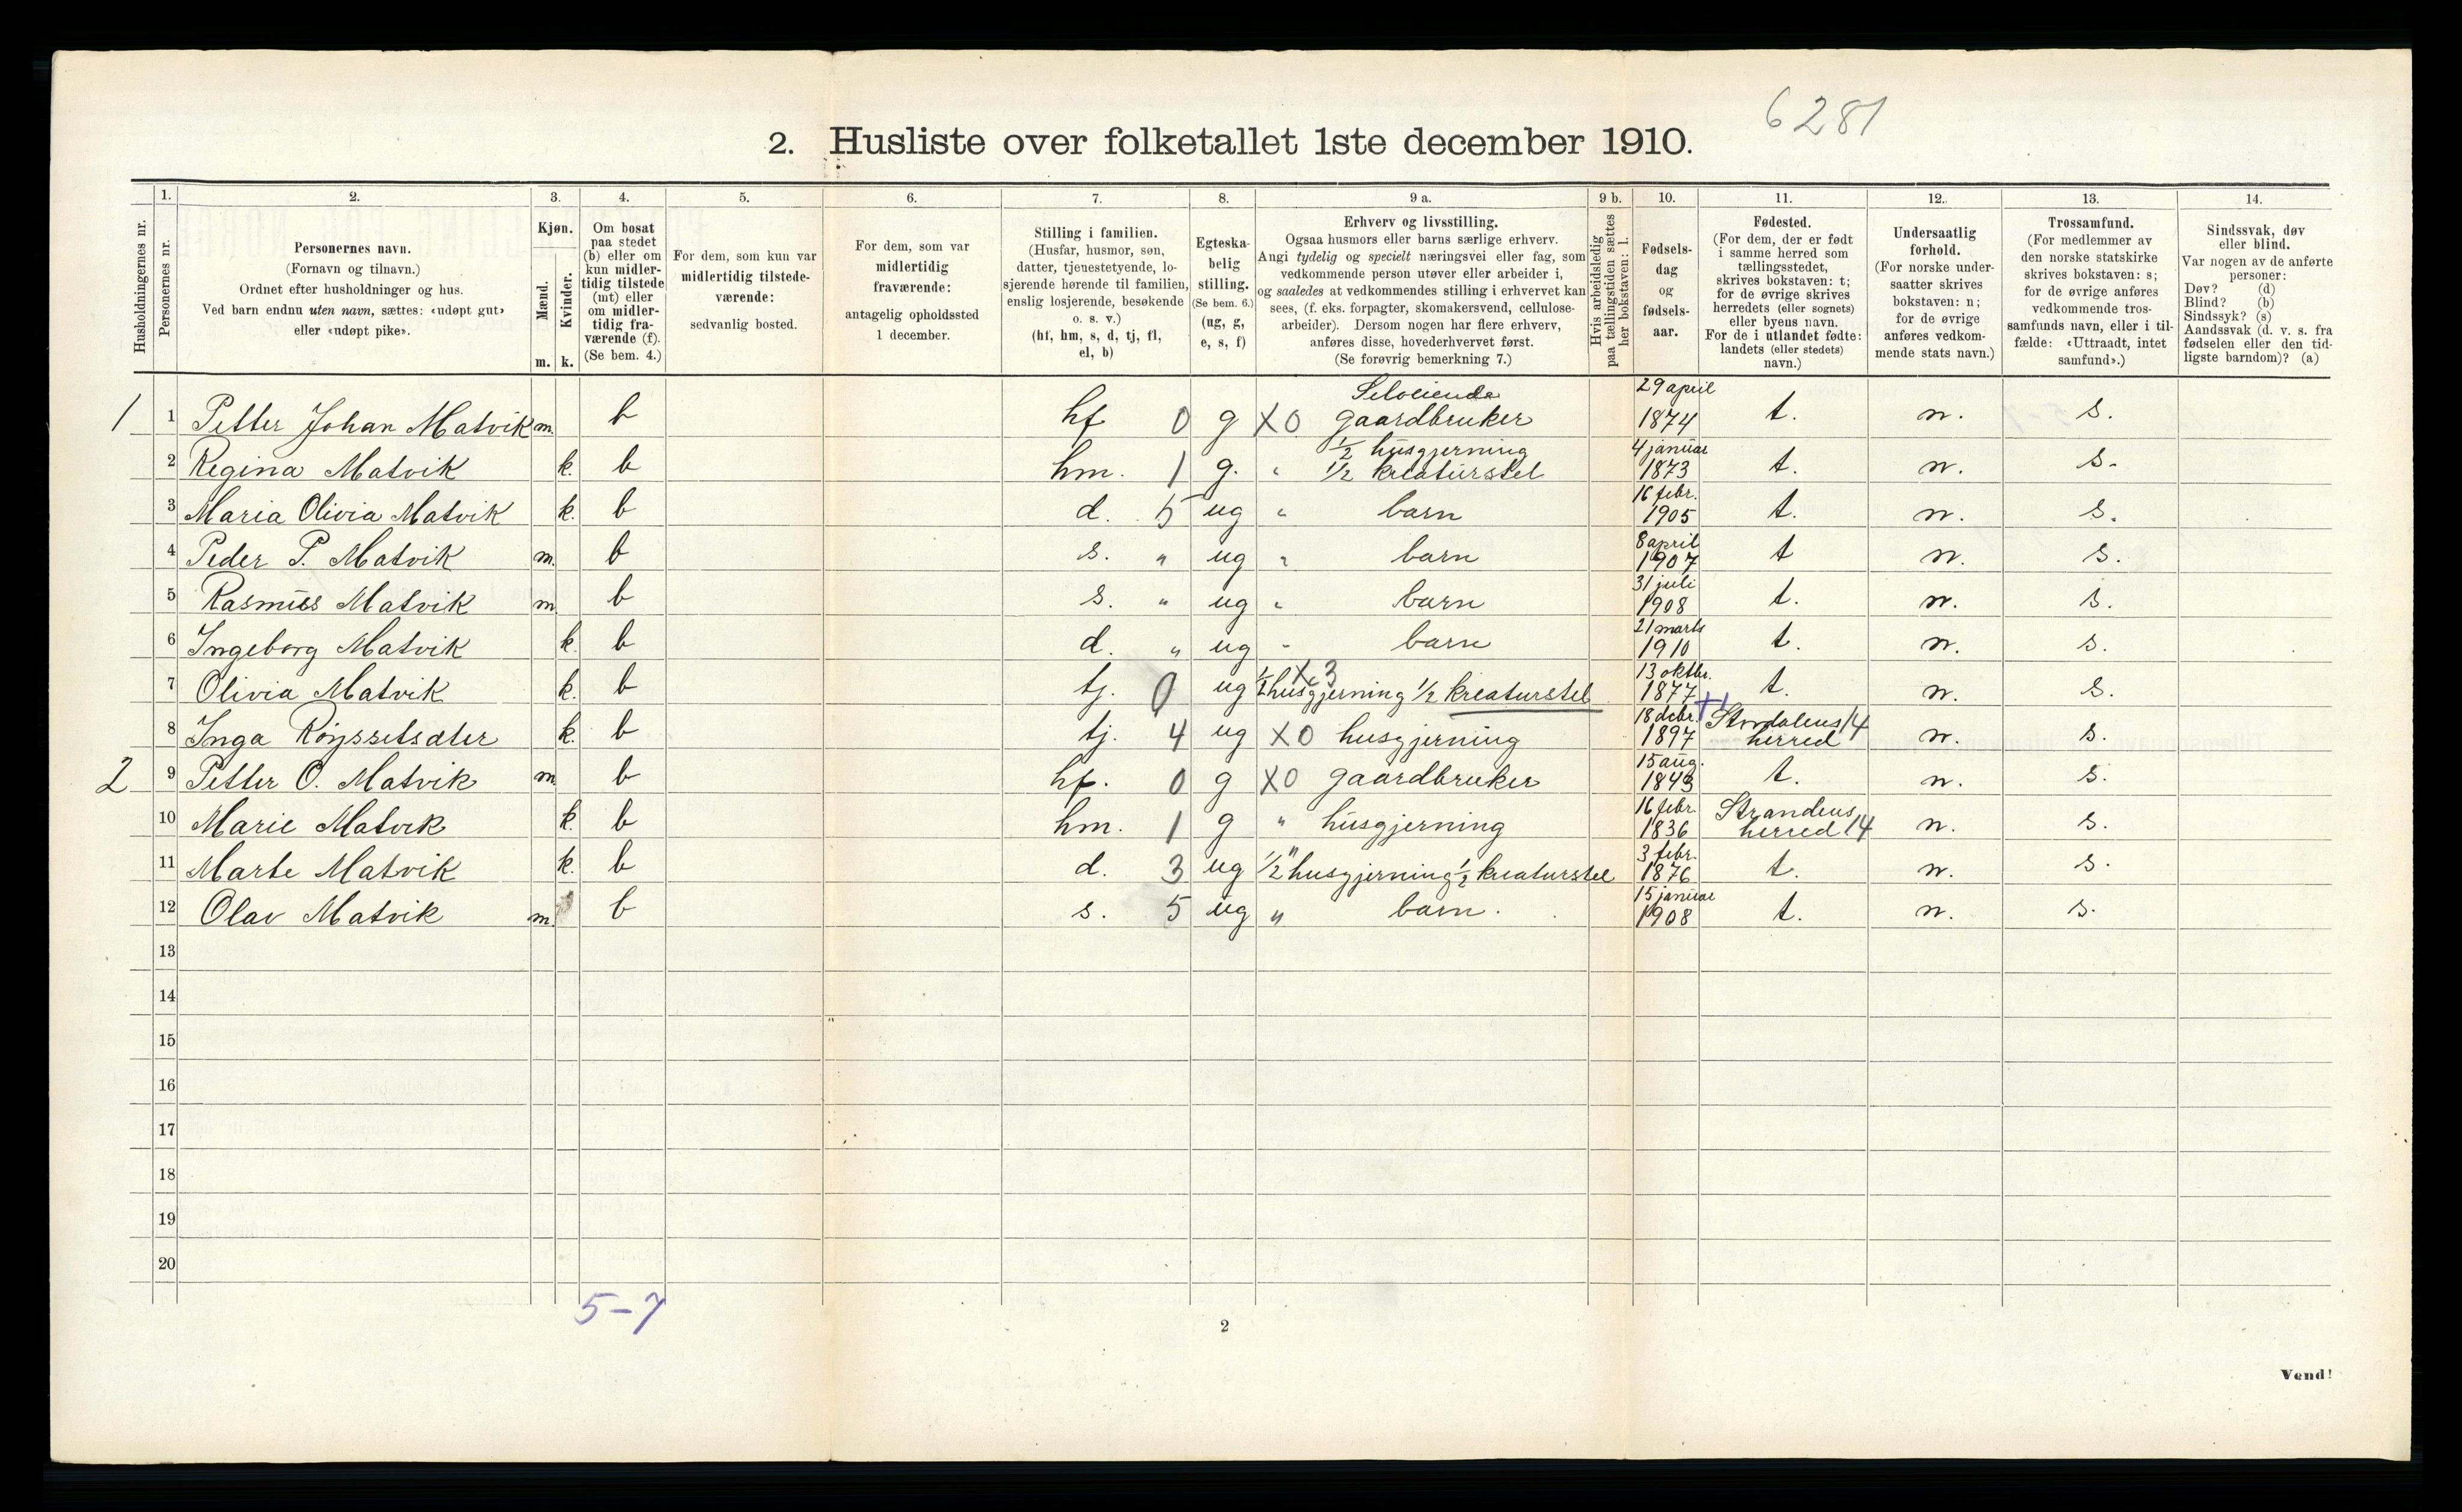 6281
2. Husliste over folketallet 1ste december 1910.
Husholdningernes nr.
1.
Personernes nr.
2.
Personernes navn.
(Fornavn og tilnavn.)
Ordnet efter husholdninger og hus.
Ved barn endnu uten navn, sættes: «udøpt gut»
eller «udøpt pike».
3.
Kjøn.
Mænd.
Kvinder.
m. k.
4.
Om bosat
paa stedet
(b) eller om
kun midler-
tidig tilstede
(mt) eller
om midler-
tidig fra-
værende (f).
(Se bem. 4.)
5.
For dem, som kun var
midlertidig tilstede-
værende:
sedvanlig bosted.
6.
For dem, som var
midlertidig
fraværende:
antagelig opholdssted
1 december.
7.
Stilling i familien.
(Husfar, husmor, søn,
datter, tjenestetyende, lo-
sjerende hørende til familien,
enslig losjerende, besøkende
o. s. v.)
(hf, hm, s, d, tj, fl,
el, b)
8.
Egteska-
belig
stilling.
(Se bem. 6.)
(ug, g,
e, s, f)
9 a.
Erhverv og livsstilling.
Ogsaa husmors eller barns særlige erhverv.
Angi tydelig og specielt næringsvei eller fag, som
vedkommende person utøver eller arbeider i,
og saaledes at vedkommendes stilling i erhvervet kan
sees, (f. eks. forpagter, skomakersvend, cellulose-
arbeider). Dersom nogen har flere erhverv,
anføres disse, hovederhvervet først.
(Se forøvrig bemerkning 7.)
9 b.
Hvis arbeidsledig
paa tællingstiden sættes
her bokstaven: l.
10.
Fødsels-
dag
og
fødsels-
aar.
11.
Fødested.
(For dem, der er født
i samme herred som
tællingsstedet,
skrives bokstaven: t;
for de øvrige skrives
herredets (eller sognets)
eller byens navn.
For de i utlandet fødte:
landets (eller stedets)
navn.)
12.
Undersaatlig
forhold.
(For norske under-
saatter skrives
bokstaven: n;
for de øvrige
anføres vedkom-
mende stats navn.)
13.
Trossamfund.
(For medlemmer av
den norske statskirke
skrives bokstaven: s;
for de øvrige anføres
vedkommende tros-
samfunds navn, eller i til-
fælde: «Uttraadt, intet
samfund».)
14.
Sindssvak, døv
eller blind.
Var nogen av de anførte
personer:
Døv? (d)
Blind? (b)
Sindssyk? (s)
Aandssvak (d. v. s. fra
fødselen eller den tid-
ligste barndom)? (a)
1 1 Petter Johan Matvik m. b hf 0 g X0 Selveiende gaardbruker 29 april 1874 t. n. s.
2 Regina Matvik k. b hm. 1 g. " 1/2 husgjerning 1/2 kreaturstel 4 januar 1873 t. n. s.
3 Maria Olivia Matvik k. b d. 5 ug " barn 16 febr. 1905 t. n. s.
4 Peder P. Matvik m. b s. " ug " barn 8 april 1907 t n. s.
5 Rasmus Matvik m. b s. " ug " barn 31 juli 1908 t. n. s.
6 Ingeborg Matvik k. b d. " ug " barn 21 marts 1910 t. n. s.
7 Olivia Matvik k. b tj. 0 ug X.3 1/2 husgjerning 1/2 kreaturstel 13 oktbr. 1877 t. n. s.
8 Inga Røyssetsæter k. b tj. 4 ug X0 husgjerning 18 debr. 1897 Stordalens herred 14 n. s.
2 9 Petter O. Matvik m b hf. 0 g X0 gaardbruker 15 aug. 1843 t. n. s.
10 Marie Matvik k. b hm. 1 g " husgjerning 16 febr. 1836 Strandens herred 14 n. s.
11 Marte Matvik k. b d. 3 ug " 1/2 husgjerning 1/2 kreaturstel 3 febr. 1876 t. n. s.
12 Olav Matvik m. b s. 5 ug " barn. 15 januar 1908 t. n. s.
13
14
15
16
17
18
19
20
5-7
2
Vend!